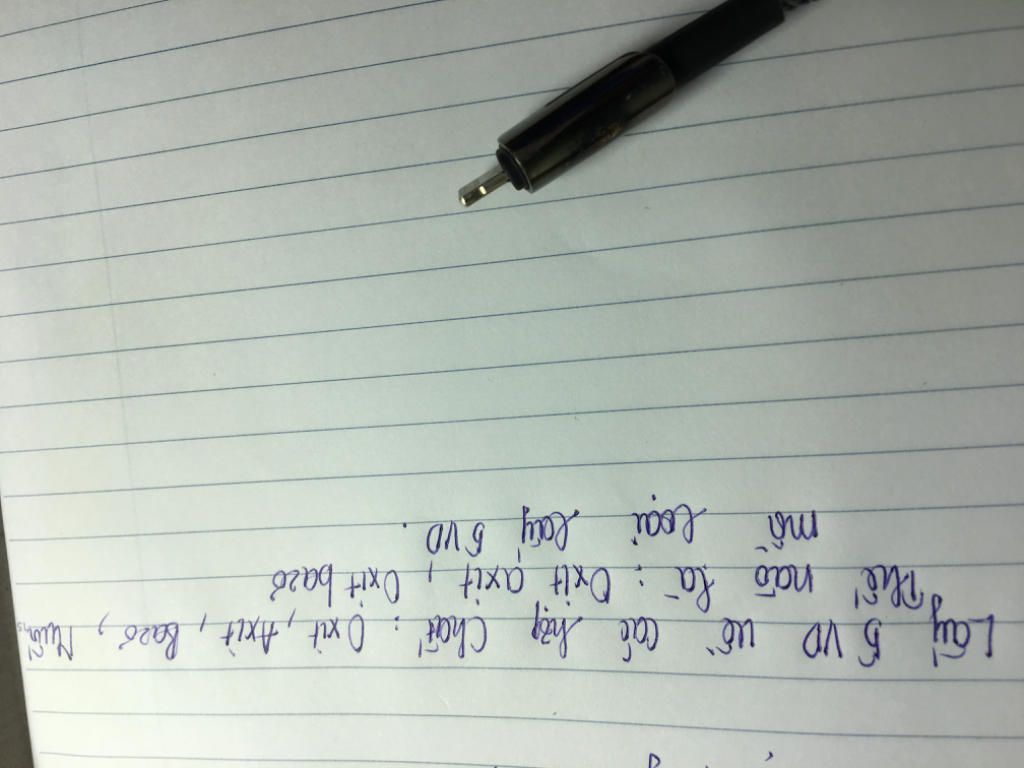 Lấy 5 VD về các hợp chất : Oxit, Axit, Bazơ, Muối
Thế nào là : Oxit axit, Oxit bazơ
mỗi loại lấy 5 VD.